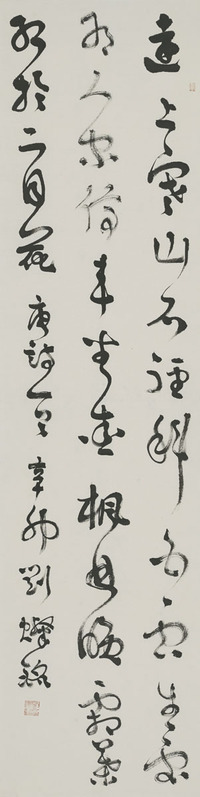 遠上寒山石徑斜白雲生處
有人家停車坐愛楓林晚霜葉
紅於二月花 唐詩一首 辛卯 劉燦銘